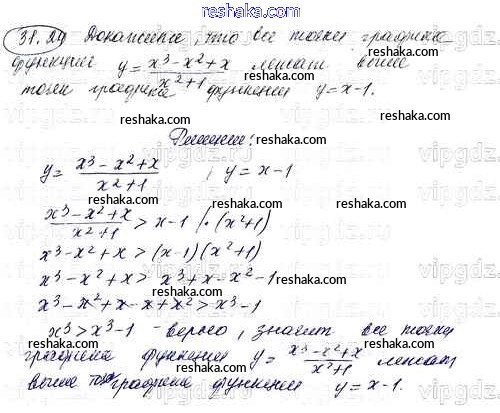 reshaka.ru
31.24 Докажите, что все точки графика
функции y = (x³ – x² + x)/(x² + 1) лежат выше
точек графика функции y = x – 1.
Решение:
y = (x³ – x² + x)/(x² + 1) ; y = x – 1
(x³ – x² + x)/(x² + 1) > x – 1 | · (x² + 1)
x³ – x² + x > (x – 1)(x² + 1)
x³ – x² + x > x³ + x – x² – 1
x³ – x² + x – x + x² > x³ – 1
x³ > x³ – 1 – верно, значит все точки
графика функции y = (x³ – x² + x)/(x² + 1) лежат
выше точек графика функции y = x – 1.